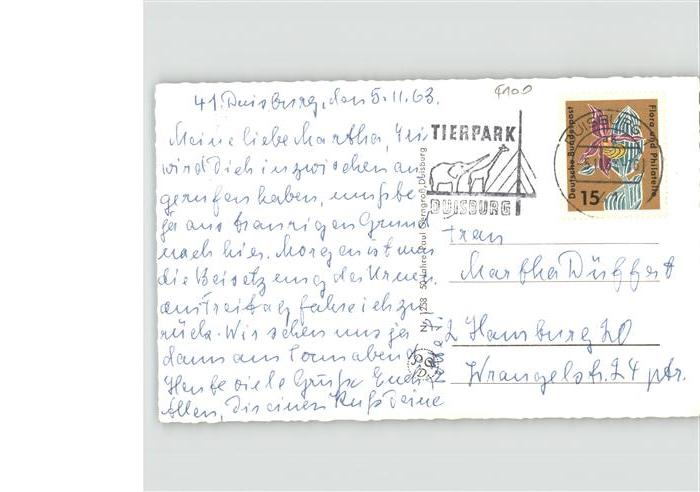 41 Duisburg, den 5.11.63.
Meine liebe Martha,
wird Dich inzwischen an
gerufen haben, mußte
ja aus traurigen Grund
nach hier. Morgen ist nun
die Beisetzung der Urne.
am Freitag fahre ich zu
rück. Wir sehen uns ja
dann am Sonnabend
Heute viele Grüße Euch
Allen, Dir einen Kuß Deine
TIERPARK
DUISBURG
Deutsche Bundespost
Flora und Philatelie
15
Nr. 1258 50 Jahre Paul Duisburg
Frau
Martha
2 Hamburg 20
Wrangelstr. 24 ptr.